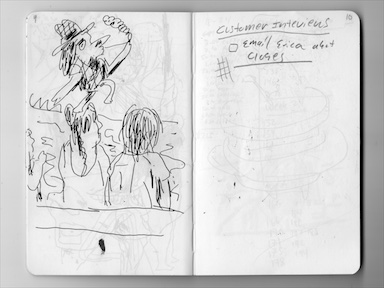 9
10
Customer Interviews
Email Erica about